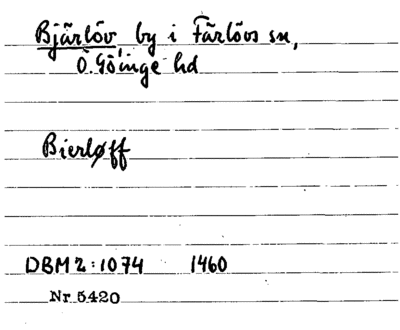 Bjärlöv, by i Färlövs sn,
Ö. Göinge hd
Bierløff
DBM 2:1074 1460
Nr 5420